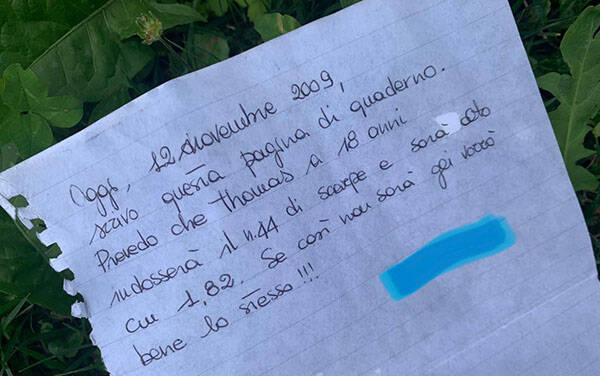 Oggi, 12 novembre 2009,
scrivo questa pagina di quaderno.
Prevedo che Thomas a 18 anni
indosserà il n.44 di scarpe e sarà alto
cm 1,82. Se così non sarà gli vorrò
bene lo stesso!!!